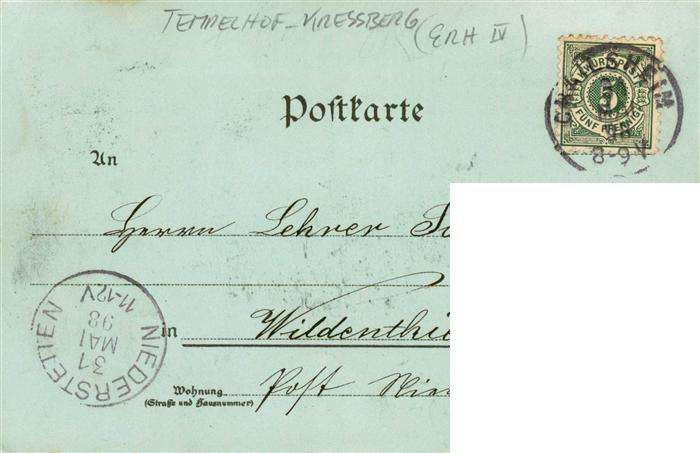 TEMPELHOF-KRESSBERG (ERH IV)
K. WÜRTT. POST
5
FÜNF PFENNIG
8-9V
Postkarte
An
Herrn Lehrer
NIEDERSTETTEN
31 MAI 98
11-12V
in
Post
Wohnung
(Straße und Hausnummer)